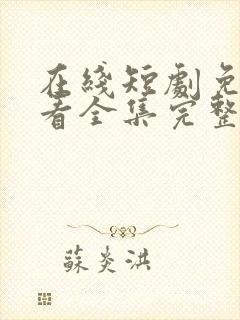 在綫短劇免
看全集完整
蘇炎洪